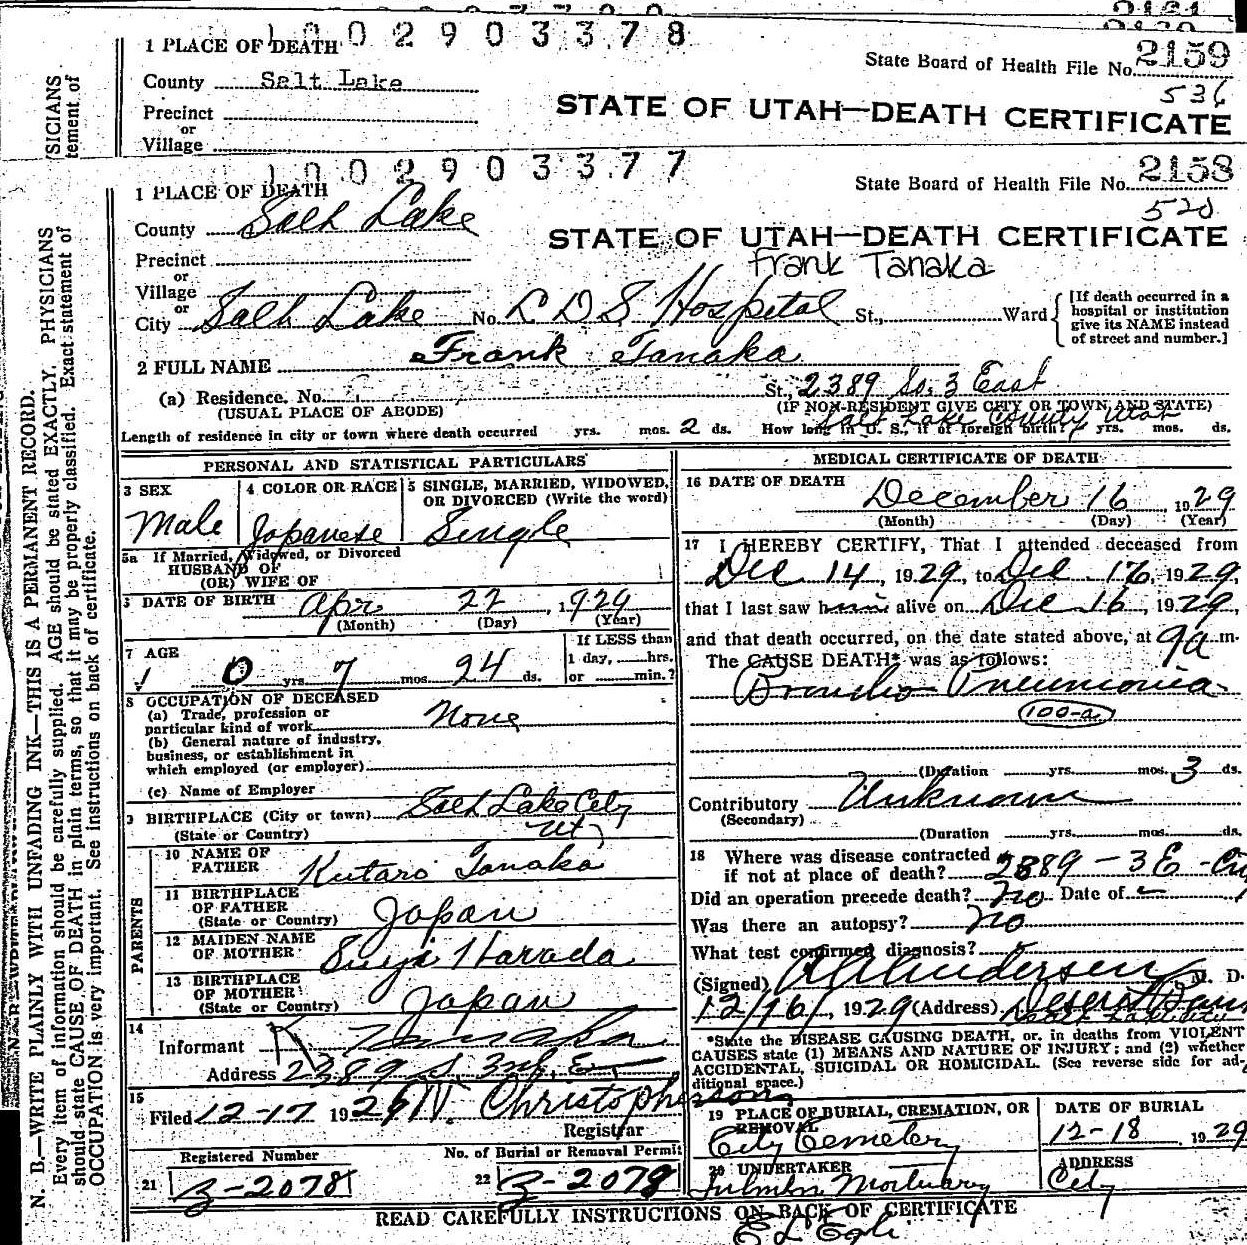 2161
2160
1 PLACE OF DEATH 1 0 0 2 9 0 3 3 7 8
State Board of Health File No. 2159
County Salt Lake
536
Precinct
or
Village
STATE OF UTAH—DEATH CERTIFICATE
1 0 0 2 9 0 3 3 7 7
1 PLACE OF DEATH
State Board of Health File No. 2158
County Salt Lake
520
STATE OF UTAH—DEATH CERTIFICATE
Precinct
Frank Tanaka
or
Village
or
City Salt Lake No. L D S Hospital St., Ward
[If death occurred in a hospital or institution give its NAME instead of street and number.]
2 FULL NAME Frank Tanaka
(a) Residence. No. St., 2389 So. 3 East
(USUAL PLACE OF ABODE) (IF NON-RESIDENT GIVE CITY OR TOWN AND STATE)
Salt Lake County Utah
Length of residence in city or town where death occurred yrs. mos. 2 ds. How long in U. S., if of foreign birth? yrs. mos. ds.
PERSONAL AND STATISTICAL PARTICULARS
3 SEX Male
4 COLOR OR RACE Japanese
5 SINGLE, MARRIED, WIDOWED, OR DIVORCED (Write the word) Single
5a If Married, Widowed, or Divorced
HUSBAND OF
(OR) WIFE OF
6 DATE OF BIRTH Apr 22, 1929
(Month) (Day) (Year)
7 AGE 0 yrs. 7 mos. 24 ds.
If LESS than 1 day, hrs. or min.?
8 OCCUPATION OF DECEASED
(a) Trade, profession or particular kind of work None
(b) General nature of industry, business, or establishment in which employed (or employer)
(c) Name of Employer
9 BIRTHPLACE (City or town) Salt Lake City
(State or Country) Ut
PARENTS
10 NAME OF FATHER Kutaro Tanaka
11 BIRTHPLACE OF FATHER (State or Country) Japan
12 MAIDEN NAME OF MOTHER Harada
13 BIRTHPLACE OF MOTHER (State or Country) Japan
14
Informant K Tanaka
Address 2389 S. 3rd E
15
Filed 12-17 1929 W. Christopherson
Registrar
Registered Number No. of Burial or Removal Permit
21 B-2078 22 B-2078
MEDICAL CERTIFICATE OF DEATH
16 DATE OF DEATH
December 16, 1929
(Month) (Day) (Year)
17 I HEREBY CERTIFY, That I attended deceased from
Dec 14, 1929, to Dec 16, 1929,
that I last saw him alive on Dec 16, 1929,
and that death occurred, on the date stated above, at 9a m.
The CAUSE DEATH* was as follows:
Broncho Pneumonia
100-a
(Duration yrs. mos. 3 ds.
Contributory Unknown
(Secondary)
(Duration yrs. mos. ds.
18 Where was disease contracted
if not at place of death? 2389 - 3 E - City
Did an operation precede death? No Date of
Was there an autopsy? No
What test confirmed diagnosis?
(Signed) Andersen M. D.
12/16/, 1929 (Address) Deseret Bank
*State the DISEASE CAUSING DEATH, or, in deaths from VIOLENT
CAUSES state (1) MEANS AND NATURE OF INJURY; and (2) whether
ACCIDENTAL, SUICIDAL OR HOMICIDAL. (See reverse side for ad-
ditional space.)
19 PLACE OF BURIAL, CREMATION, OR REMOVAL
City Cemetery
DATE OF BURIAL
12-18, 1929
20 UNDERTAKER
Mortuary
ADDRESS
City
READ CAREFULLY INSTRUCTIONS ON BACK OF CERTIFICATE
E L Egli
N. B.—WRITE PLAINLY WITH UNFADING INK—THIS IS A PERMANENT RECORD.
Every item of information should be carefully supplied. AGE should be stated EXACTLY. PHYSICIANS
should state CAUSE OF DEATH in plain terms, so that it may be properly classified. Exact statement of
OCCUPATION is very important. See instructions on back of certificate.
YSICIANS
tement of